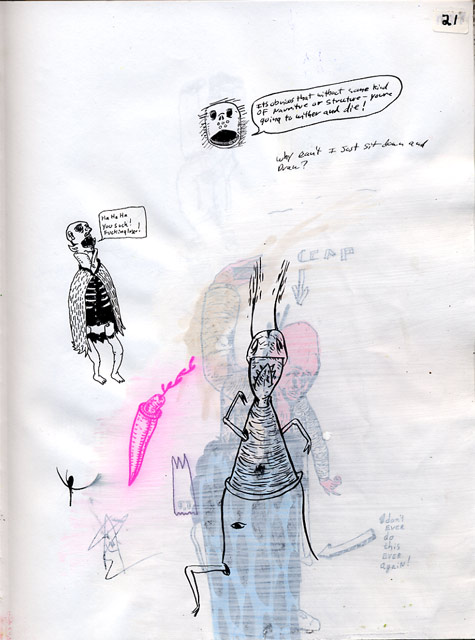 21
Its obvious that without some kind
OF Narritive or structure - youre
going to wither and die!
Why can't I Just sit down and
Draw?
Ha Ha Ha
You suck!
Fucking loser!
CRAP
I don't
EVER
do
this
EVER
again!